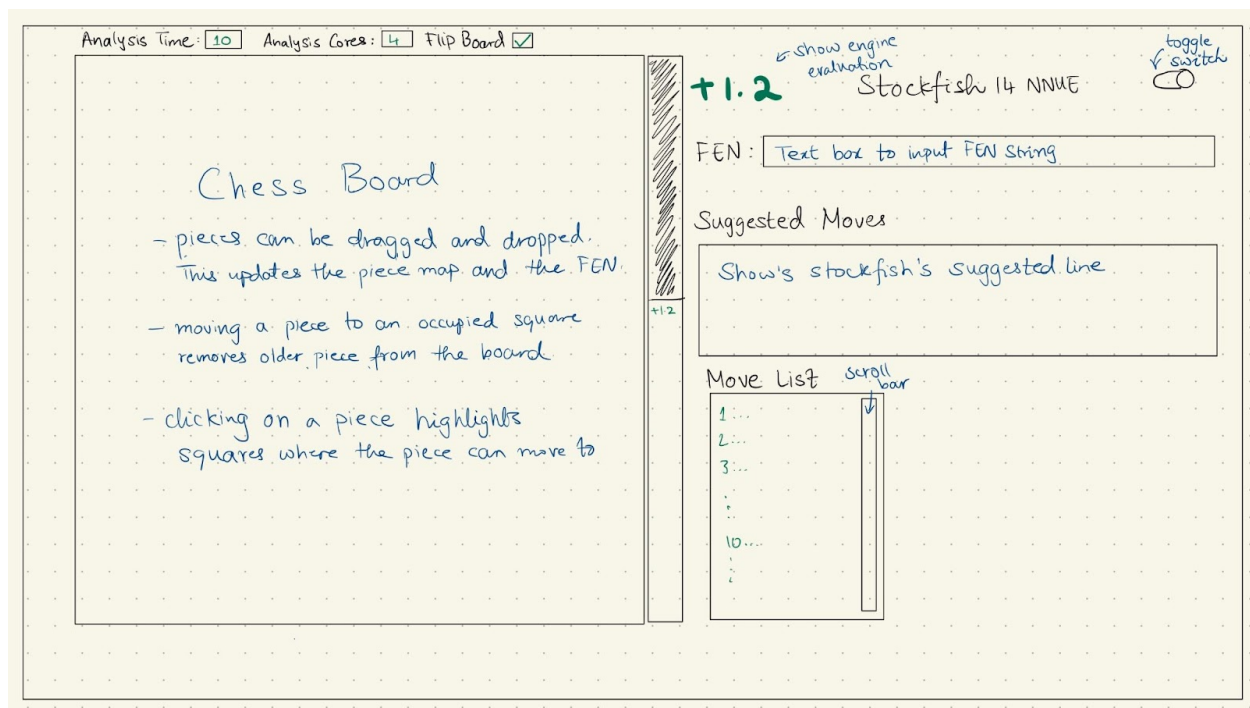 Analysis Time: 10 Analysis Cores: 4 Flip Board
Chess Board
- pieces can be dragged and dropped.
This updates the piece map and the FEN.
- moving a piece to an occupied square
removes older piece from the board
- clicking on a piece highlights
squares where the piece can move to
+1.2
show engine
evaluation
+1.2
Stockfish 14 NNUE
toggle
switch
FEN: Text box to input FEN String
Suggested Moves
Show's stockfish's suggested line
Move List
scroll
bar
1...
2...
3...
10...